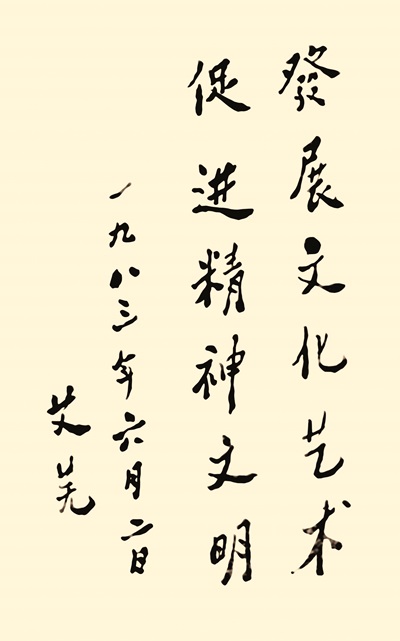 發展文化艺术
促进精神文明
一九八三年六月二日
艾芜